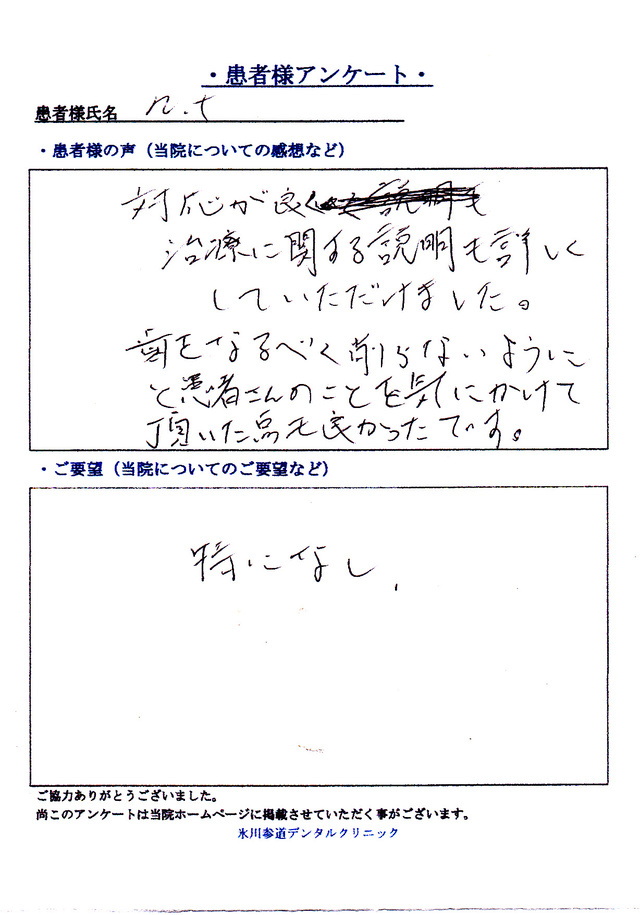 ・患者様アンケート・
患者様氏名 n.t
・患者様の声（当院についての感想など）
対応が良く
治療に関する説明も詳しく
していただけました。
歯をなるべく削らないように
と患者さんのことを気にかけて
頂いた点も良かったです。
・ご要望（当院についてのご要望など）
特になし.
ご協力ありがとうございました。
尚このアンケートは当院ホームページに掲載させていただく事がございます。
氷川参道デンタルクリニック